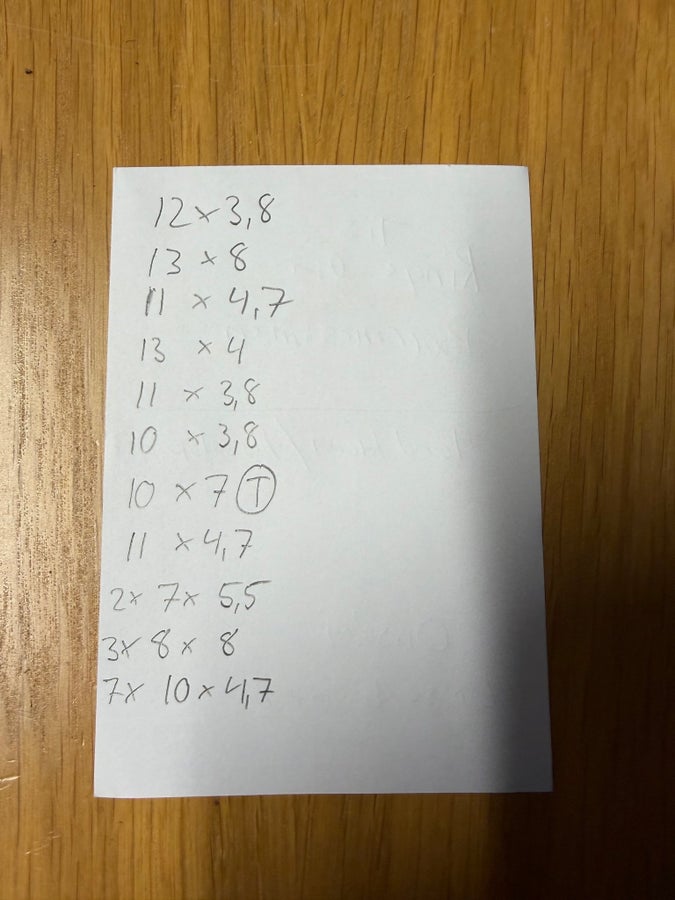 12 x 3,8
13 x 8
11 x 4,7
13 x 4
11 x 3,8
10 x 3,8
10 x 7 T
11 x 4,7
2x 7x 5,5
3x 8 x 8
7x 10 x 4,7